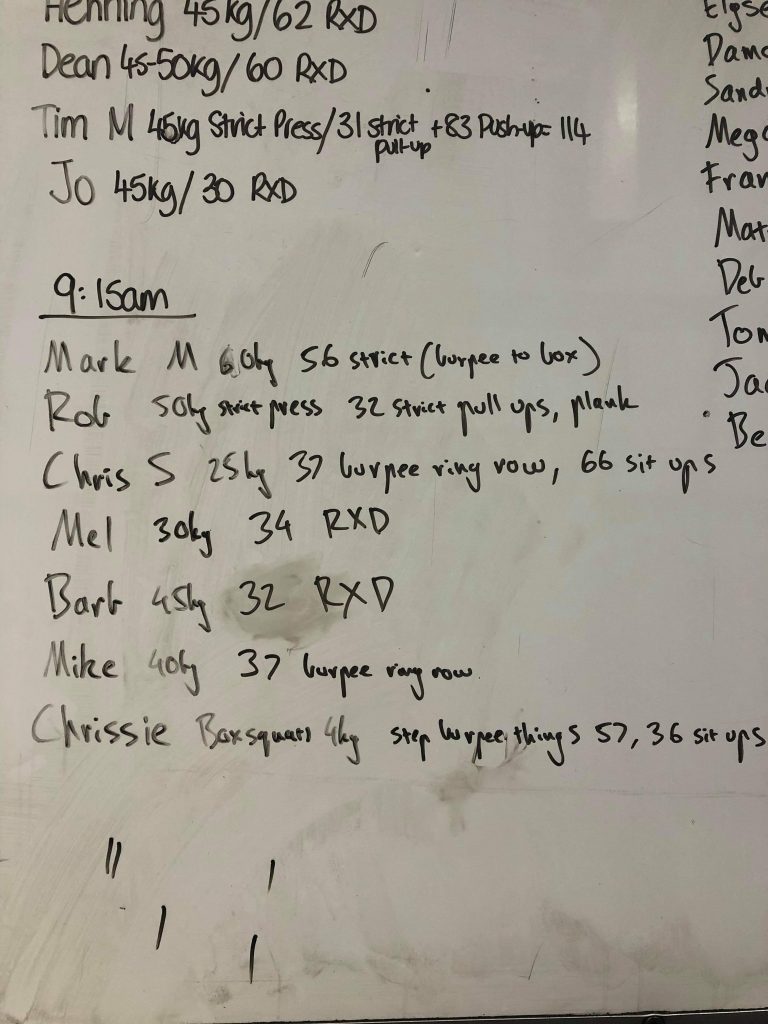 Henning 45kg/62 RXD
Dean 45-50kg/60 RXD
Tim M 45kg Strict Press/31 strict pull-up +83 Push-up= 114
Jo 45kg/30 RXD
9:15am
Mark M 60kg 56 strict (burpee to box)
Rob 50kg strict press 32 strict pull ups, plank
Chris S 25kg 37 burpee ring row, 66 sit ups
Mel 30kg 34 RXD
Barb 45kg 32 RXD
Mike 40kg 37 burpee ring row
Chrissie Boxsquats 4kg step burpee things 57, 36 sit ups
Elyse
Damo
Sand
Mega
Fran
Mat
Deb
Tom
Jac
Be